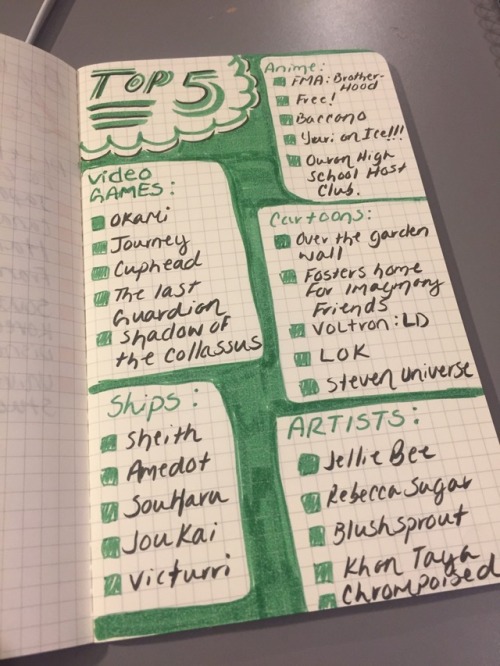 TOP 5
Video
GAMES:
OKAMi
Journey
Cuphead
The last
Guardian
Shadow of
the Collassus
Ships:
Sheith
Amedot
SouHaru
JouKai
Victurri
Anime:
FMA: Brother-
Hood
Free!
Baccano
Yuri on Ice!!!
Ouran High
School Host
Club.
Cartoons:
Over the garden
wall
Fosters home
For Imaginary
Friends
Voltron: LD
LOK
Steven Universe
ARTISTS:
Jellie Bee
Rebecca Sugar
Blushsprout
Khan Taya
Chrompoised